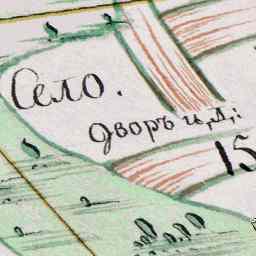 Село.
Дворъ и, д,:
15